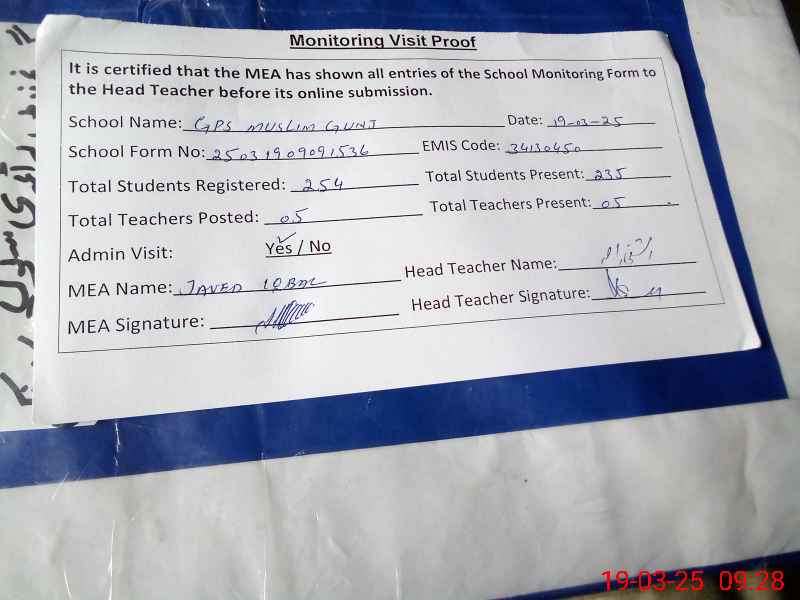 Monitoring Visit Proof
It is certified that the MEA has shown all entries of the School Monitoring Form to
the Head Teacher before its online submission.
School Name: GPS MUSLIM GUNJ Date: 19-03-25
School Form No: 25031909091536 EMIS Code: 34130450
Total Students Registered: 254 Total Students Present: 235
Total Teachers Posted: 05 Total Teachers Present: 05
Admin Visit: Yes / No
MEA Name: JAVED IQBAL Head Teacher Name:
MEA Signature: Head Teacher Signature:
19-03-25 09:28